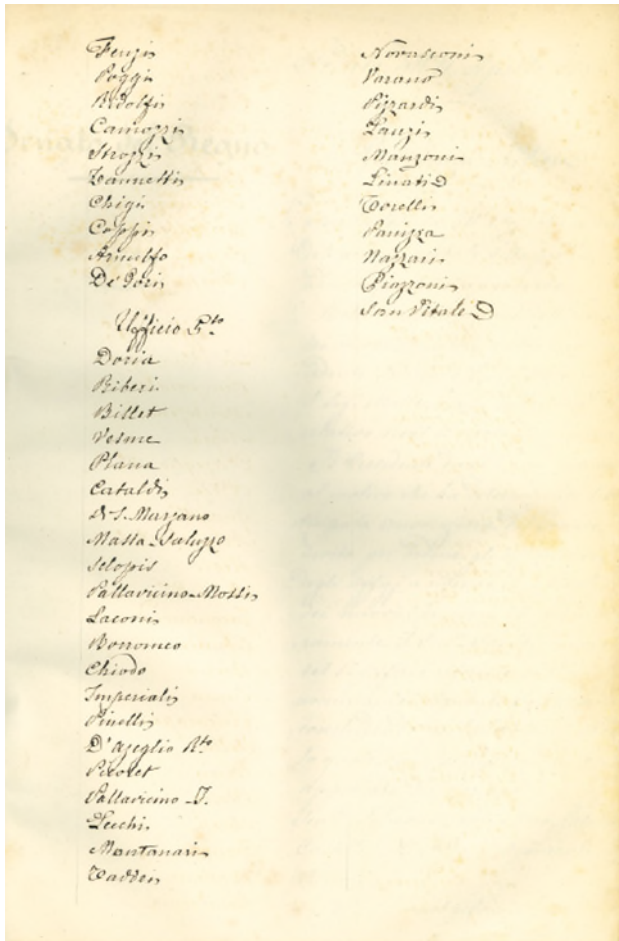 Fenzi
Poggi
Ridolfi
Camozzi
Strozzi
Zannetti
Chigi
Coppi
Arnulfo
De Gori
Ufficio 5.to
Doria
Riberi
Billet
Vesme
Plana
Cataldi
Di S. Marzano
Massa-Saluzzo
Sclopis
Pallavicino-Mossi
Laconi
Borromeo
Chiodo
Imperiali
Pinelli
D'Azeglio R.to
Picolet
Pallavicino-T.
Lechi
Montanari
Taddei
Novasconi
Varano
Pizzardi
Lauzi
Manzoni
Linati
Torelli
Panizza
Nazzari
Piazzoni
San Vitale